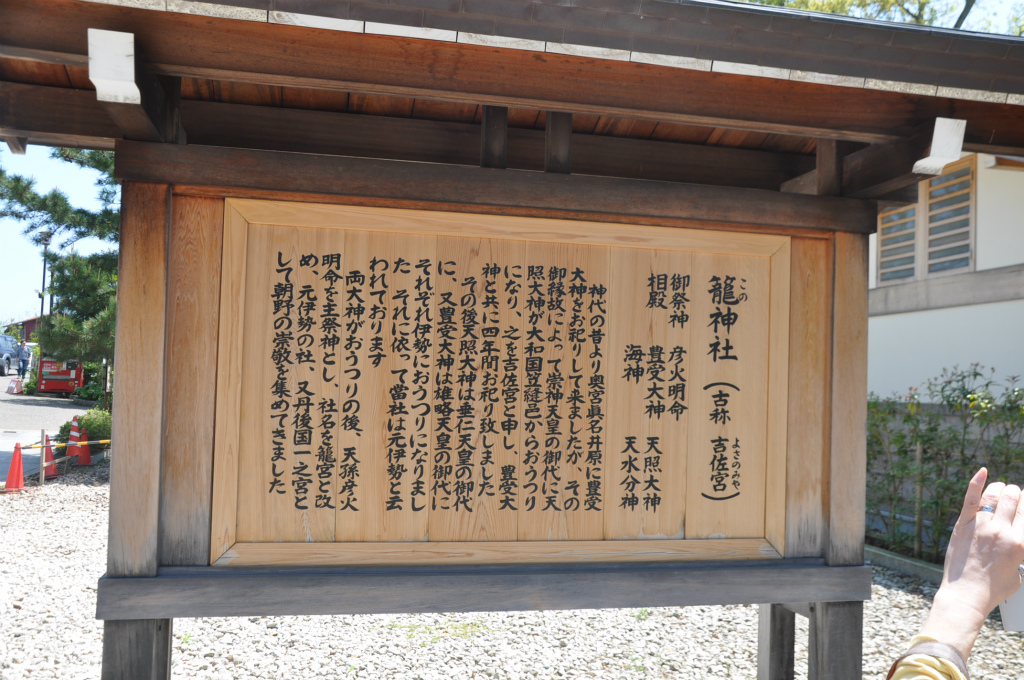 この
籠神社 (古称 吉佐宮)
よさのみや
御祭神 彦火明命
相殿 豊受大神 天照大神
海神 天水分神
神代の昔より奥宮眞名井原に豊受
大神をお祀りして来ましたが、その
御縁故によって崇神天皇の御代に天
照大神が大和国笠縫邑からおうつり
になり、之を吉佐宮と申し、豊受大
神と共に四年間お祀り致しました
その後天照大神は垂仁天皇の御代
に、又豊受大神は雄略天皇の御代に
それぞれ伊勢におうつりになりまし
た それに依って當社は元伊勢と云
われております
両大神がおうつりの後、天孫彦火
明命を主祭神とし、社名を籠宮と改
め、元伊勢の社、又丹後国一之宮と
して朝野の崇敬を集めてきました